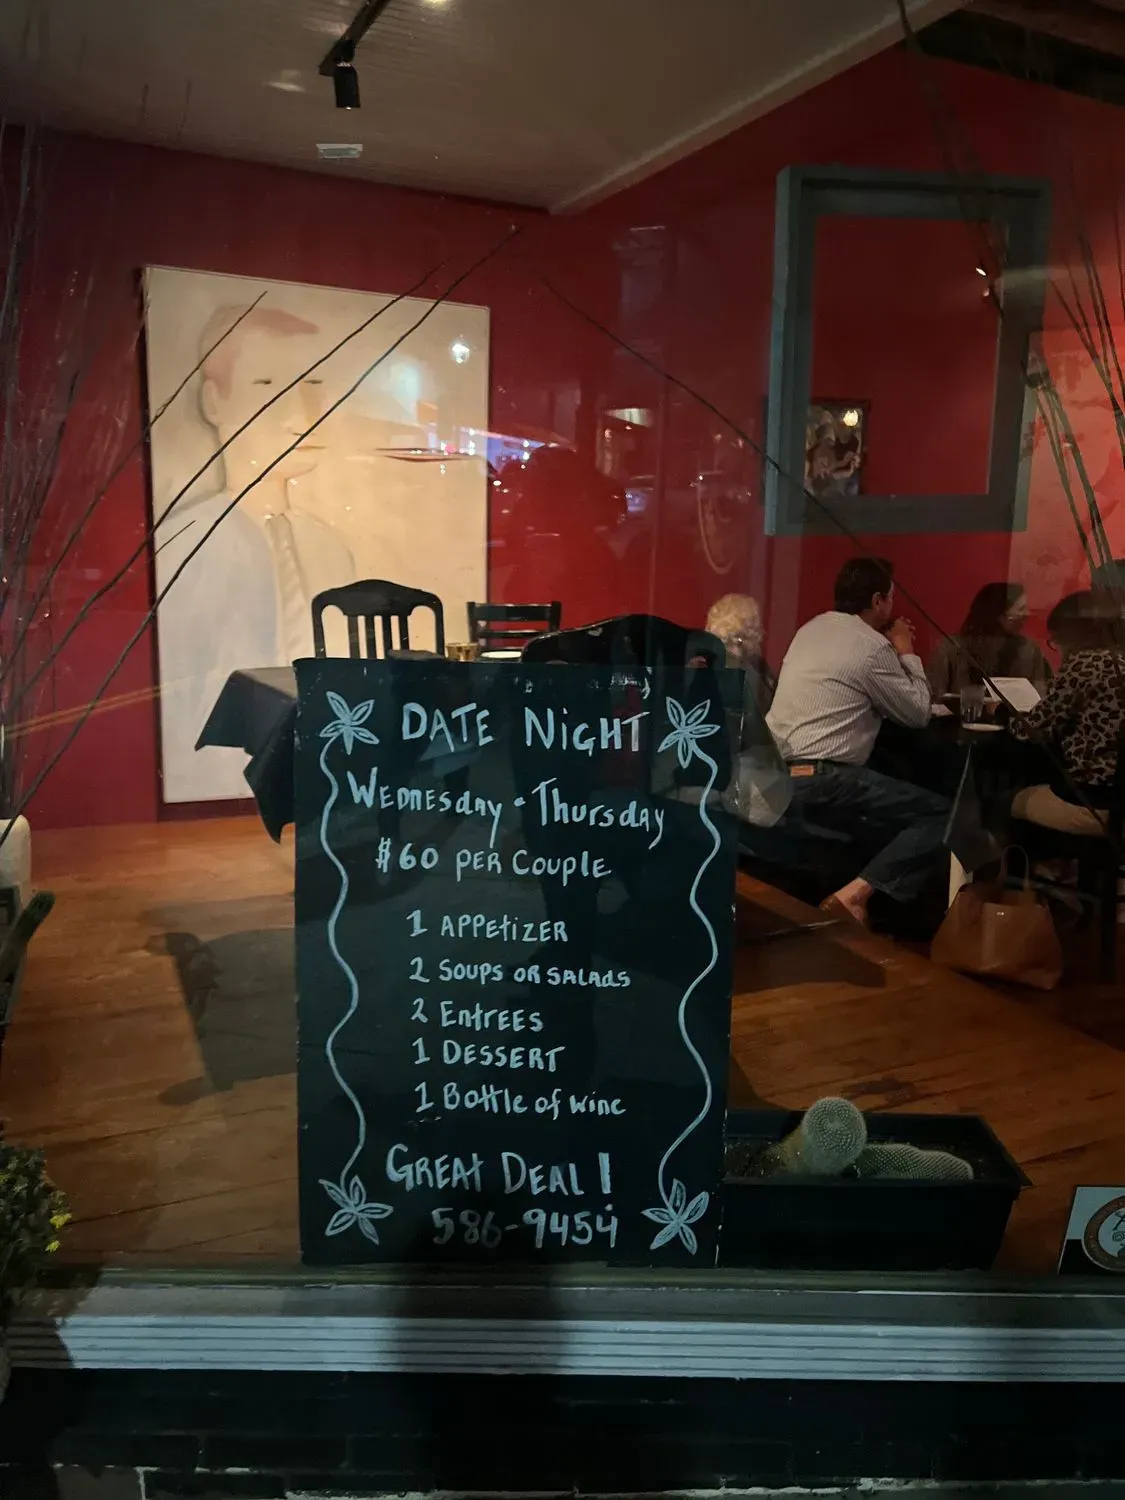 DATE NiGHT
WEDNESday - Thursday
$60 PER COUPLE
1 APPEtiZER
2 SOUPS OR SALADS
2 ENtREES
1 DESSERT
1 Bottle of wine
GREAT DEAL!
586-9454